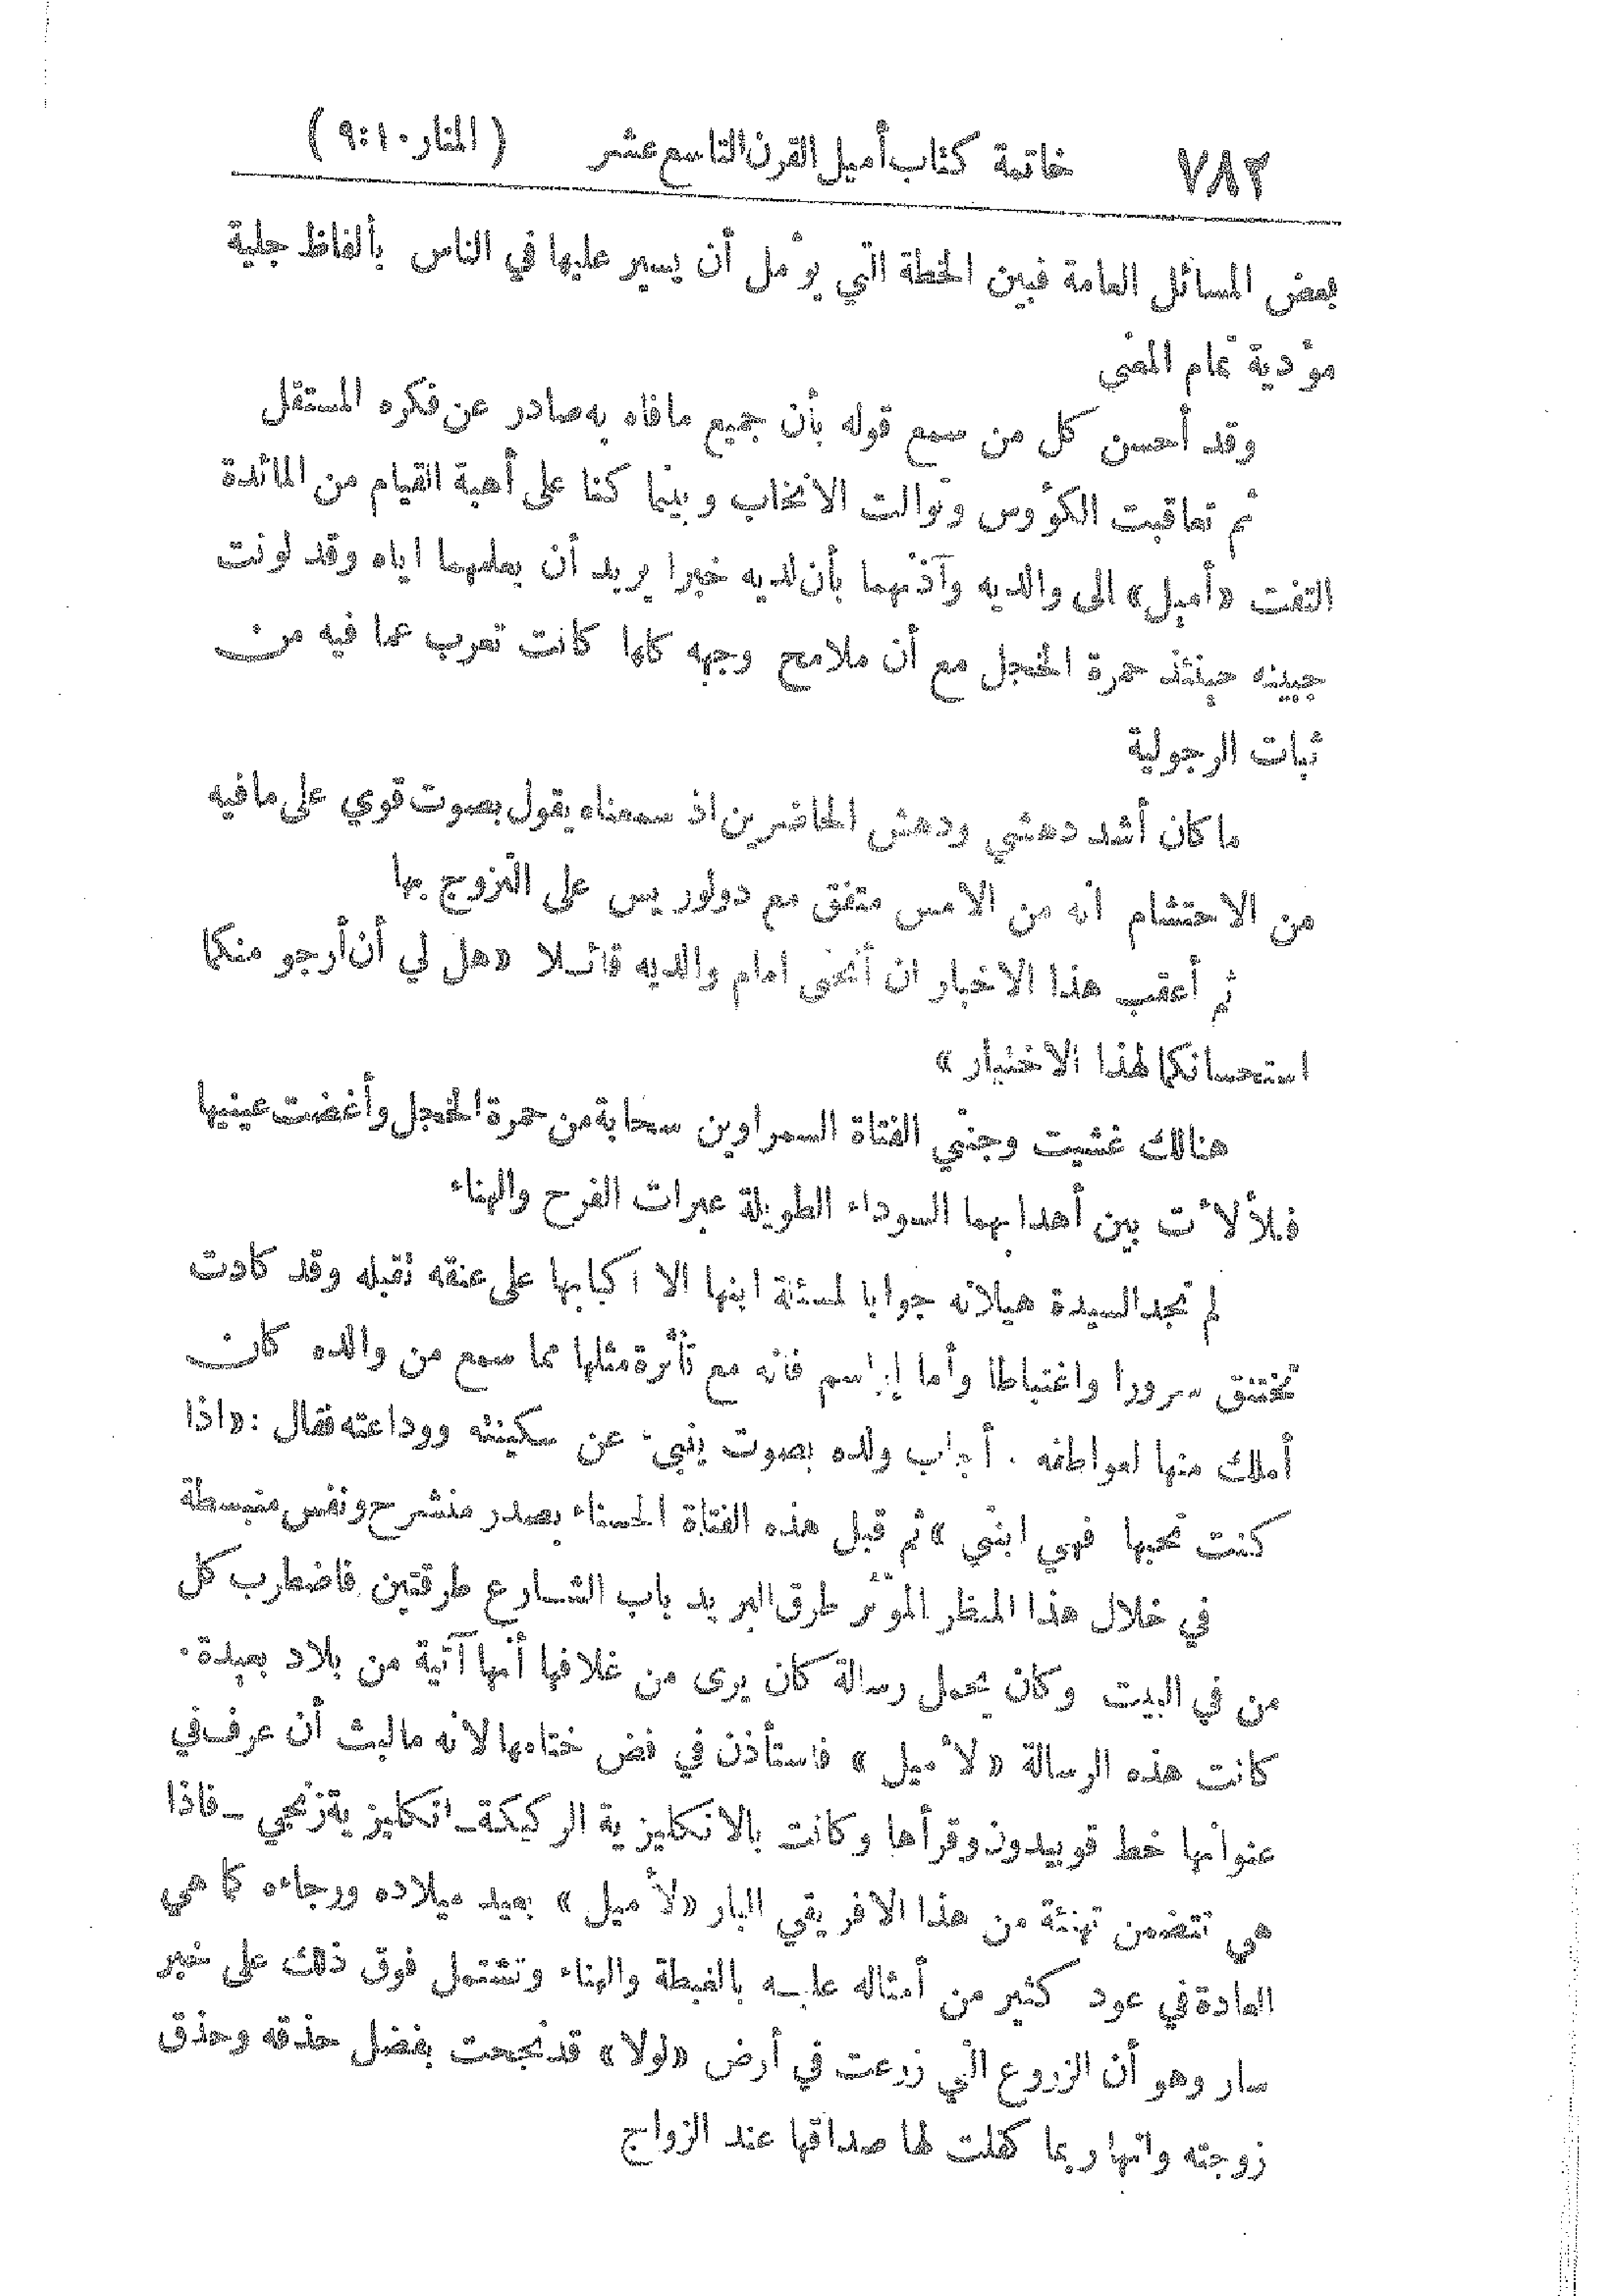 ٧٨٢ خاتمة كتاب أميل القرن التاسع عشر (المنار ١٠:٩)
بعض المسائل العامة فبين الخطة التي يؤمل أن يسير عليها في الناس بألفاظ جلية
مؤدية تمام المعنى
وقد أحسن كل من سمع قوله بأن جميع مافاه به صادر عن فكره المستقل
ثم تعاقبت الكؤوس وتوالت الانخاب وبينما كنا على أهبة القيام من المائدة
التفت «أميل» الى والديه وآذنهما بأن لديه خبرا يريد أن يعلمهما اياه وقد لونت
جبينه حينئذ حمرة الخجل مع أن ملامح وجهه كلها كانت تعرب عما فيه من
ثبات الرجولية
ما كان أشد دهشي ودهش الحاضرين اذ سمعناه يقول بصوت قوي على مافيه
من الاحتشام انه من الامس متفق مع دولوريس على التزوج بها
ثم أعقب هذا الاخبار ان أنحنى امام والديه قائلا «هل لي أن أرجو منكما
استحسانكما لهذا الاختيار»
هنالك غشيت وجنتي الفتاة السمراوين سحابة من حمرة الخجل وأغضت عينيها
فتلألأت بين أهدابهما السوداء الطويلة عبرات الفرح والهناء
لم تجد السيدة هيلانه جوابا لمسئلة ابنها الا اكبابها على عنقه تقبله وقد كادت
تختنق سرورا واغتباطا وأما إراسم فانه مع تأثره مثلها مما سمع من والده كان
أملك منها لعواطفه . أجاب ولده بصوت ينبئ عن سكينته ووداعته فقال : «اذا
كنت تحبها فهي ابنتي» ثم قبل هذه الفتاة الحسناء بصدر منشرح ونفس منبسطة
في خلال هذا المنظر المؤثر طرق البريد باب الشارع طرقتين فاضطرب كل
من في البيت وكان يحمل رسالة كان يرى من غلافها أنها آتية من بلاد بعيدة.
كانت هذه الرسالة «لأميل» فاستأذن في فض ختامها لانه مالبث أن عرف في
عنوانها خط قوبيدون وقرأها وكانت بالانكليزية الركيكة ـ انكليزية زنجي ـ فاذا
هي تتضمن تهنئة من هذا الافريقي البار «لأميل» بعيد ميلاده ورجاءه كما هي
العادة في عود كثير من أمثاله عليه بالغبطة والهناء وتشتمل فوق ذلك على خبر
سار وهو أن الزروع التي زرعت في أرض «لولا» قد نجحت بفضل حذقه وحذق
زوجته وانها ربما كفلت لها صداقها عند الزواج